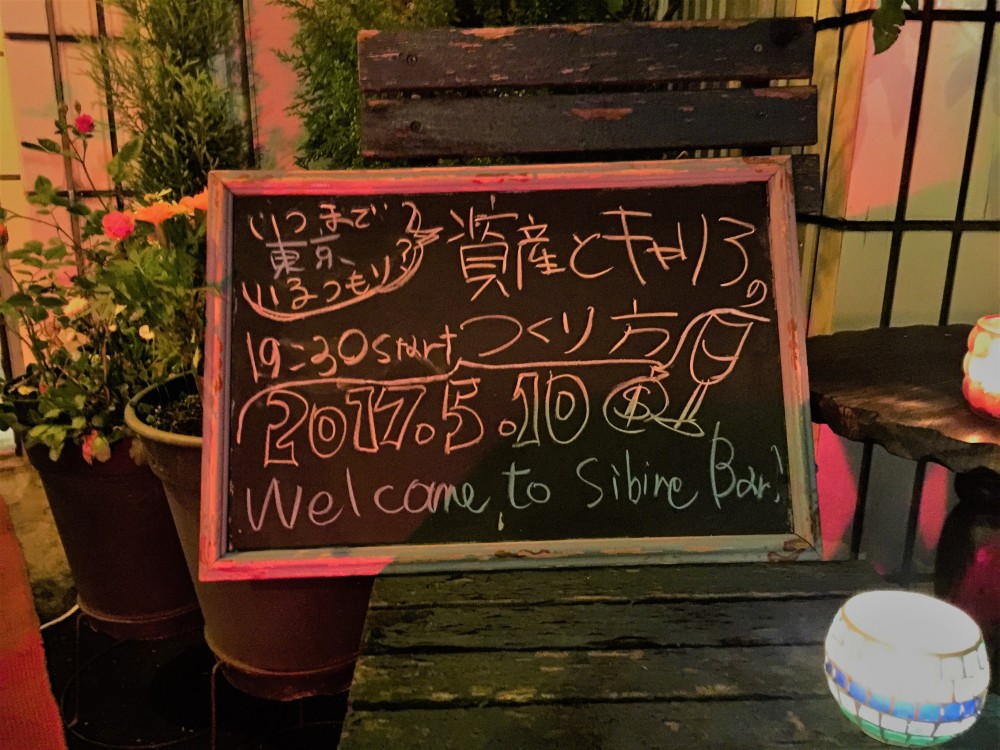 いつまで
東京
いるつもり??
資産とキャリアの
つくり方
19:30 start
2017.5.10
Welcome to Sibire Bar!